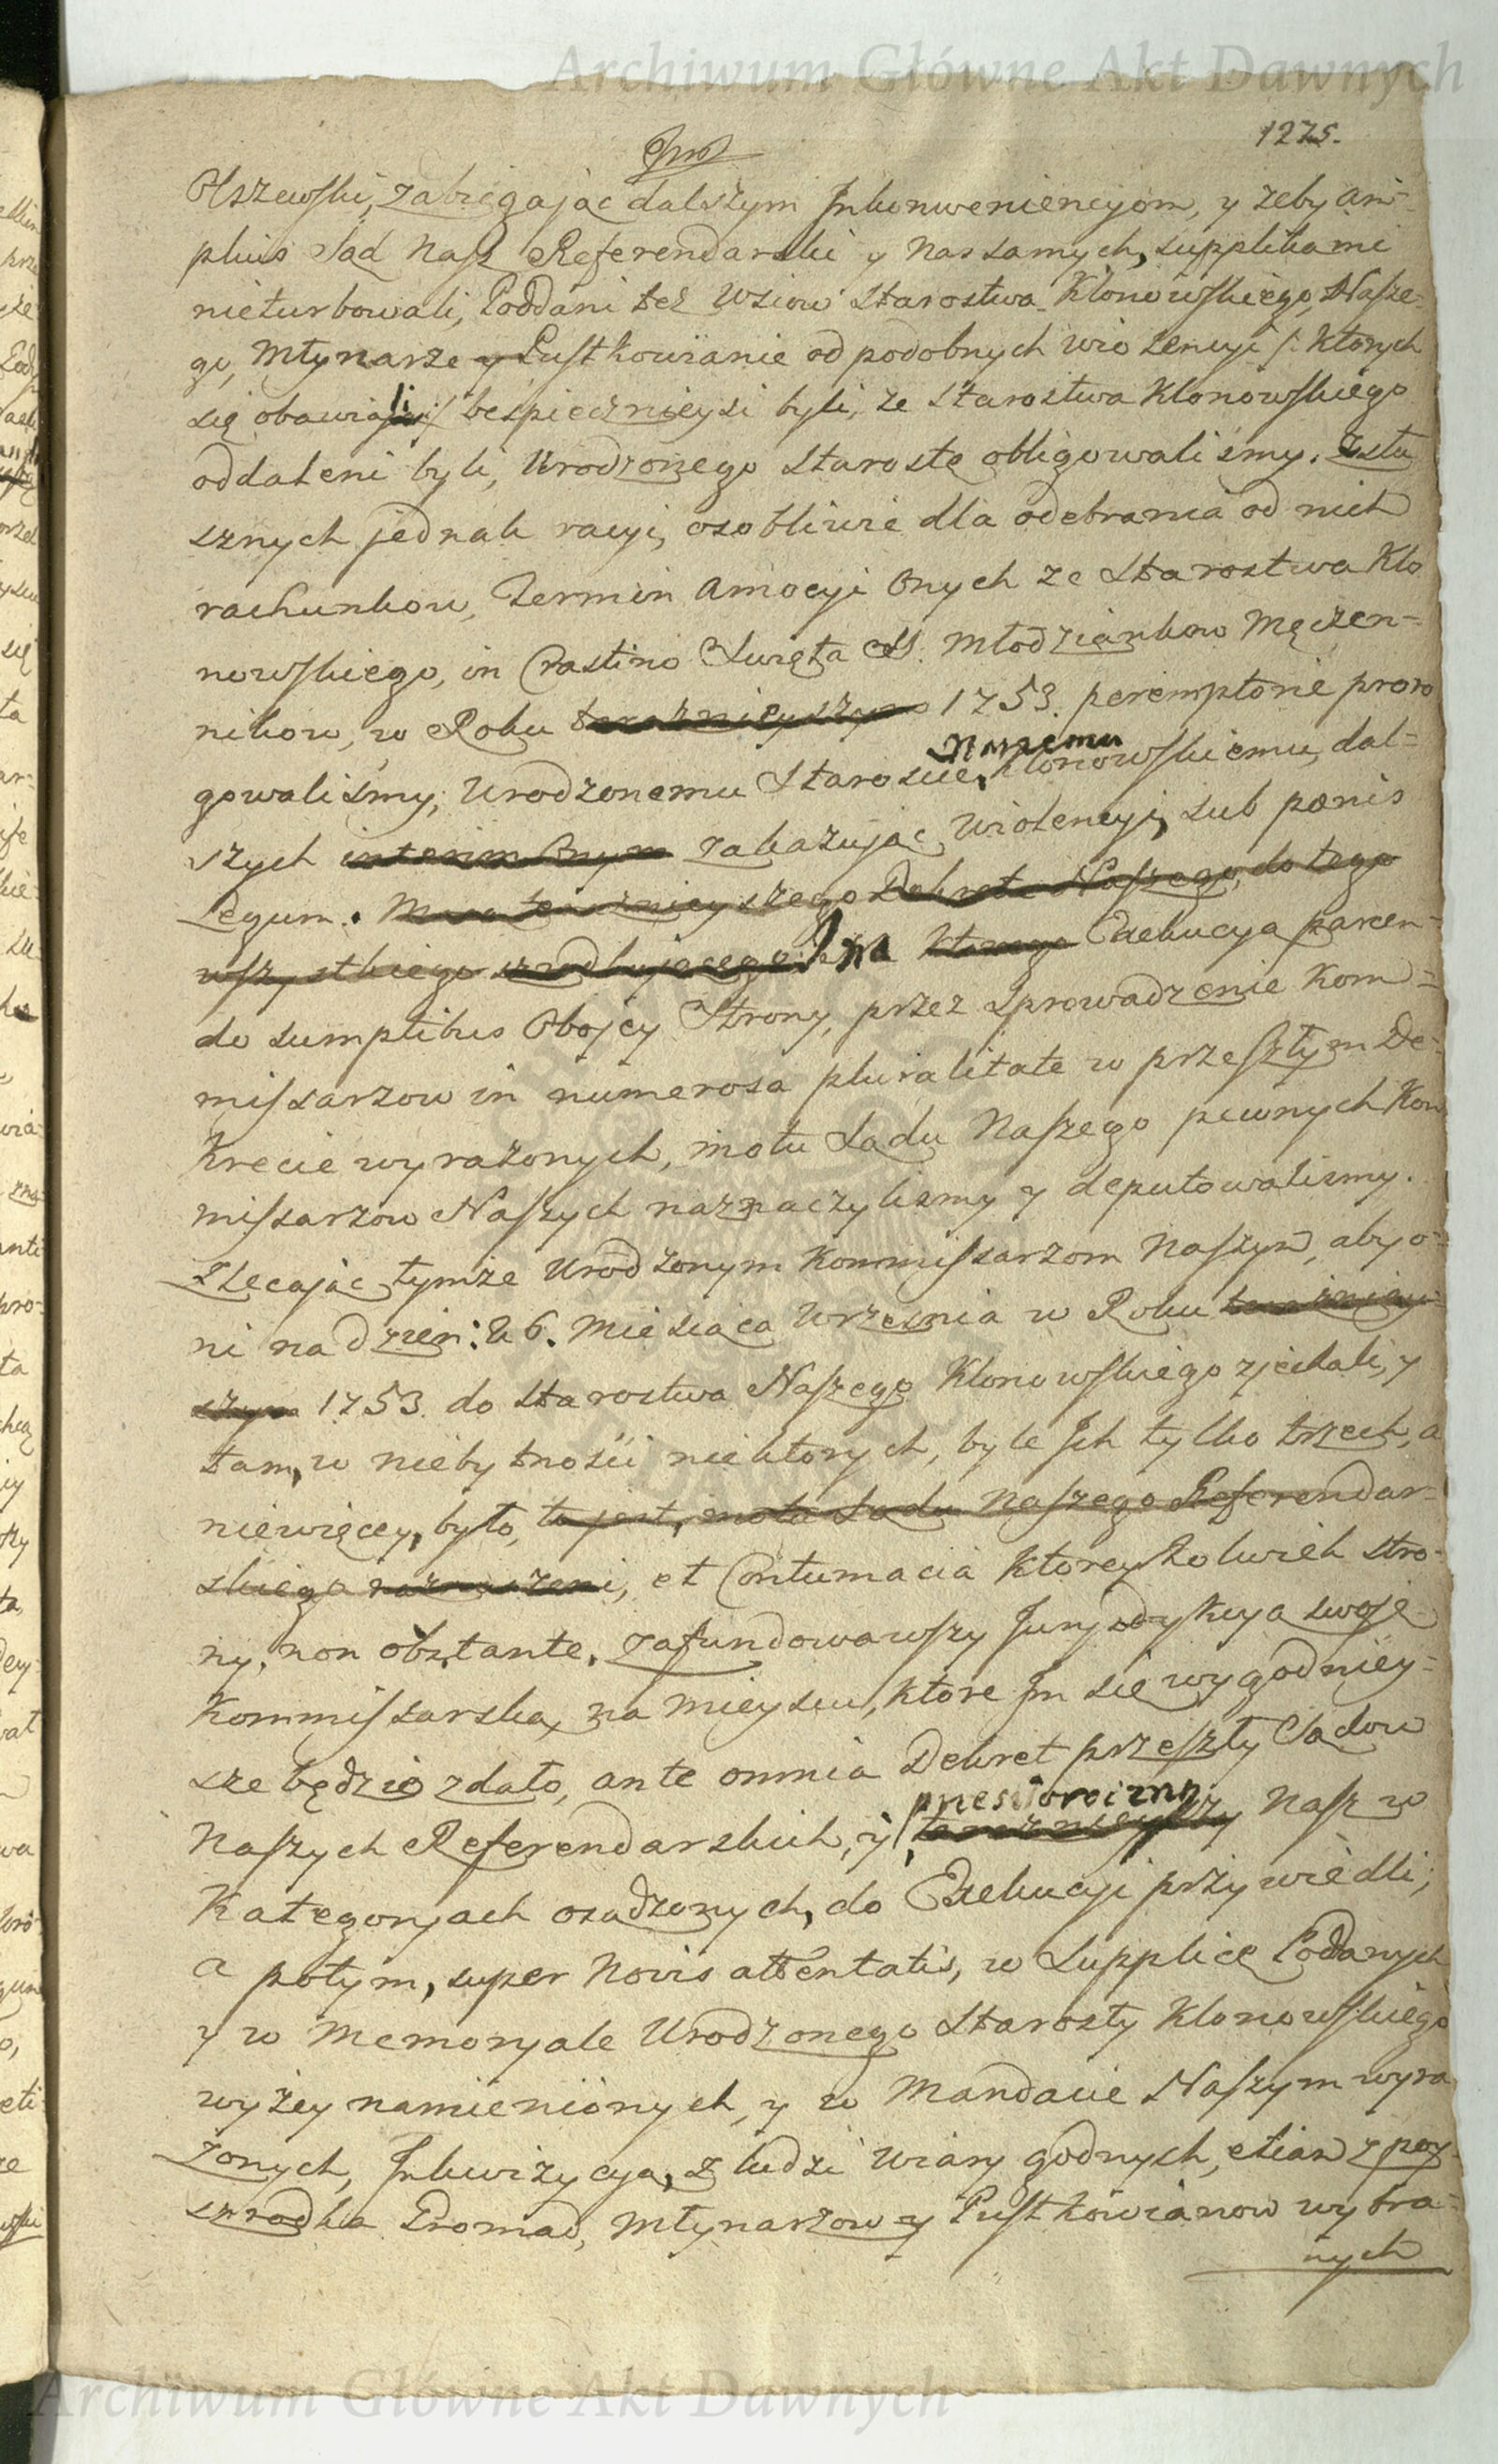 Archiwum Główne Akt Dawnych
1275.
Olszewski, zabiegaiąc dalszym Inkonweniencyom, y żeby am=
plius Sąd Nasz Referendarski y Nas samych, supplikami
nieturbowali, Poddani też Wsiow Starostwa Klonowskiego, Nasze=
go, Młynarze y Pustkowianie od podobnych wiolencyi /: ktorych
się obawiali :/ bespiecznieysi byli, ze Starostwa Klonowskiego
oddaleni byli, Urodzonego Starostę obligowaliśmy. Z słu
sznych jednak racyi, osobliwie dla odebrania od nich
rachunkow, Termin Amocyi Onych ze Starostwa Klo
nowskiego, in Crastino Swięta SS. Młodziankow Męczen=
nikow, w Roku teraznieyszym 1753. peremptorie proro
gowaliśmy, Urodzonemu Staroscie Naszemu Klonowskiemu, dal=
szych interim Onym zakazując Wiolencyi, sub pœnis
Legum. Mocą teraznieyszego Dekretu Naszego, do tego
wszystkiego Na ktorego Exekucyą parcen=
do sumptibus Obojey Strony, przez sprowadzenie Kom=
missarzow in numerosa pluralitate w przeszłym De=
krecie wyrażonych, motu Sądu Naszego pewnych Kom
missarzow Naszych naznaczyliśmy y deputowaliśmy.
Zlecając tymże Urodzonym Kommissarzom Naszym, aby o=
ni na dzień: 26. Miesiąca Września w Roku teraźniey=
szym 1753. do Starostwa Naszego Klonowskiego zjechali, y
tam, w niebytności niektorych, byle Ich tylko trzech, a
niewięcey, było, to jest, motu Sądu Naszego Referendar=
skiego naznaczeni, et Contumacia ktoreyżkolwiek Stro=
ny, non obstante, zafundowawszy Jurysdykcyą swoję
Kommissarską, na mieyscu, ktore Im się wygodniey=
sze będzie zdało, ante omnia Dekret przeszły Sądow
Naszych Referendarskich, y teraznieyszy Nasz w
Kategoryach osądzonych, do Exekucyi przywiedli;
a potym, super Novis attentatis, w Supplice Poddanych
y w Memoryale Urodzonego Starosty Klonowskiego
wyżey namienionych, y w Mandacie Naszym wyra
żonych, Inkwizycyą, z ludzi wiary godnych, etiam z poy
szrodka Gromad, Młynarzow y Pustkowianow wybra=
nych
Archiwum Główne Akt Dawnych